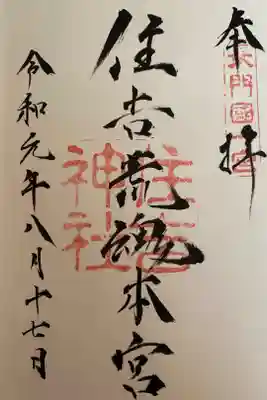 奉拝
長門國一宮
住吉荒魂本宮
住吉神社
令和元年八月十七日